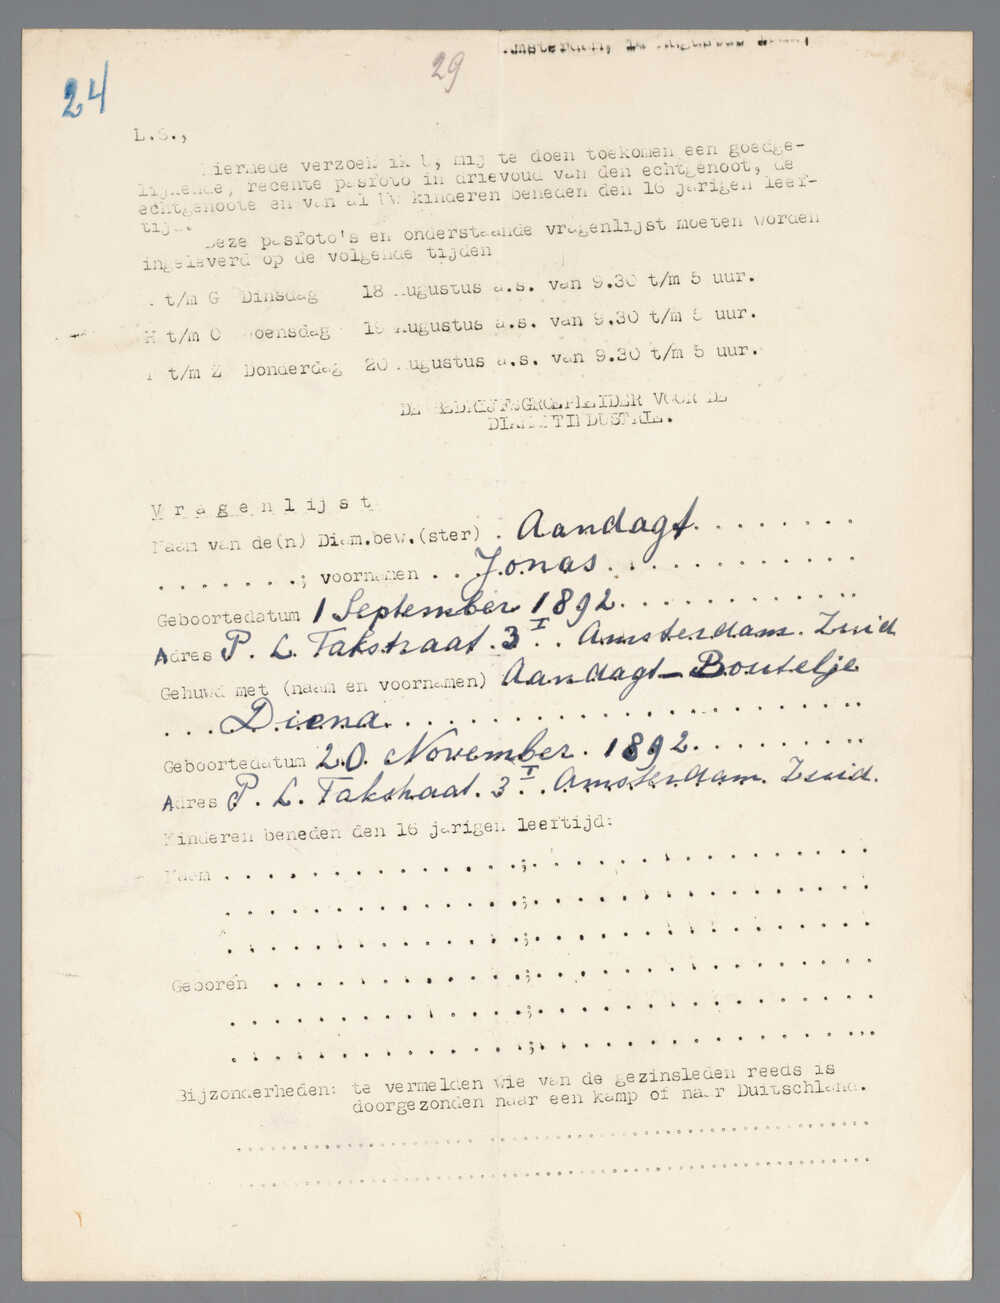 29
24
L.S.,
Hiermede verzoek ik U, mij te doen toekomen een goedge-
lijkende, recente pasfoto in drievoud van den echtgenoot, de
echtgenoote en van al Uw kinderen beneden den 16 jarigen leef-
tijd.
Deze pasfoto's en onderstaande vragenlijst moeten worden
ingeleverd op de volgende tijden
t/m G Dinsdag 18 Augustus a.s. van 9.30 t/m 5 uur.
H t/m O Woensdag 19 Augustus a.s. van 9.30 t/m 5 uur.
P t/m Z Donderdag 20 Augustus a.s. van 9.30 t/m 5 uur.
DE BEDRIJFSGROEPLEIDER VOOR DE
DIAMANTINDUSTRIE.
Vragenlijst
Naam van de(n) Diam.bew.(ster) . Aandagt. . . . . . . .
. . . . . . . .; voornamen . . Jonas. . . . . . . . . . . .
Geboortedatum 1 September 1892. . . . . . . . . . . .
Adres P. L. Takstraat. 3 I . . Amsterdam. Zuid
Gehuwd met (naam en voornamen) Aandagt-Boutelje
. . . Diena. . . . . . . . . . . . . . . . . . . . . . .
Geboortedatum 20. November. 1892. . . . . . . . .
Adres P. L. Takstraat. 3 I . Amsterdam. Zuid.
Kinderen beneden den 16 jarigen leeftijd:
Naam . . . . . . . . . . . . . . .;. . . . . . . . . . . . . . . .
. . . . . . . . . . . . . . .;. . . . . . . . . . . . . . . .
. . . . . . . . . . . . . . .;. . . . . . . . . . . . . . . .
Geboren . . . . . . . . . . . . .;. . . . . . . . . . . . . . . .
. . . . . . . . . . . . . . .;. . . . . . . . . . . . . . . .
. . . . . . . . . . . . . . .;. . . . . . . . . . . . . . . .
Bijzonderheden: te vermelden wie van de gezinsleden reeds is
doorgezonden naar een kamp of naar Duitschland.
. . . . . . . . . . . . . . . . . . . . . . . . . . . . . .
. . . . . . . . . . . . . . . . . . . . . . . . . . . . . .